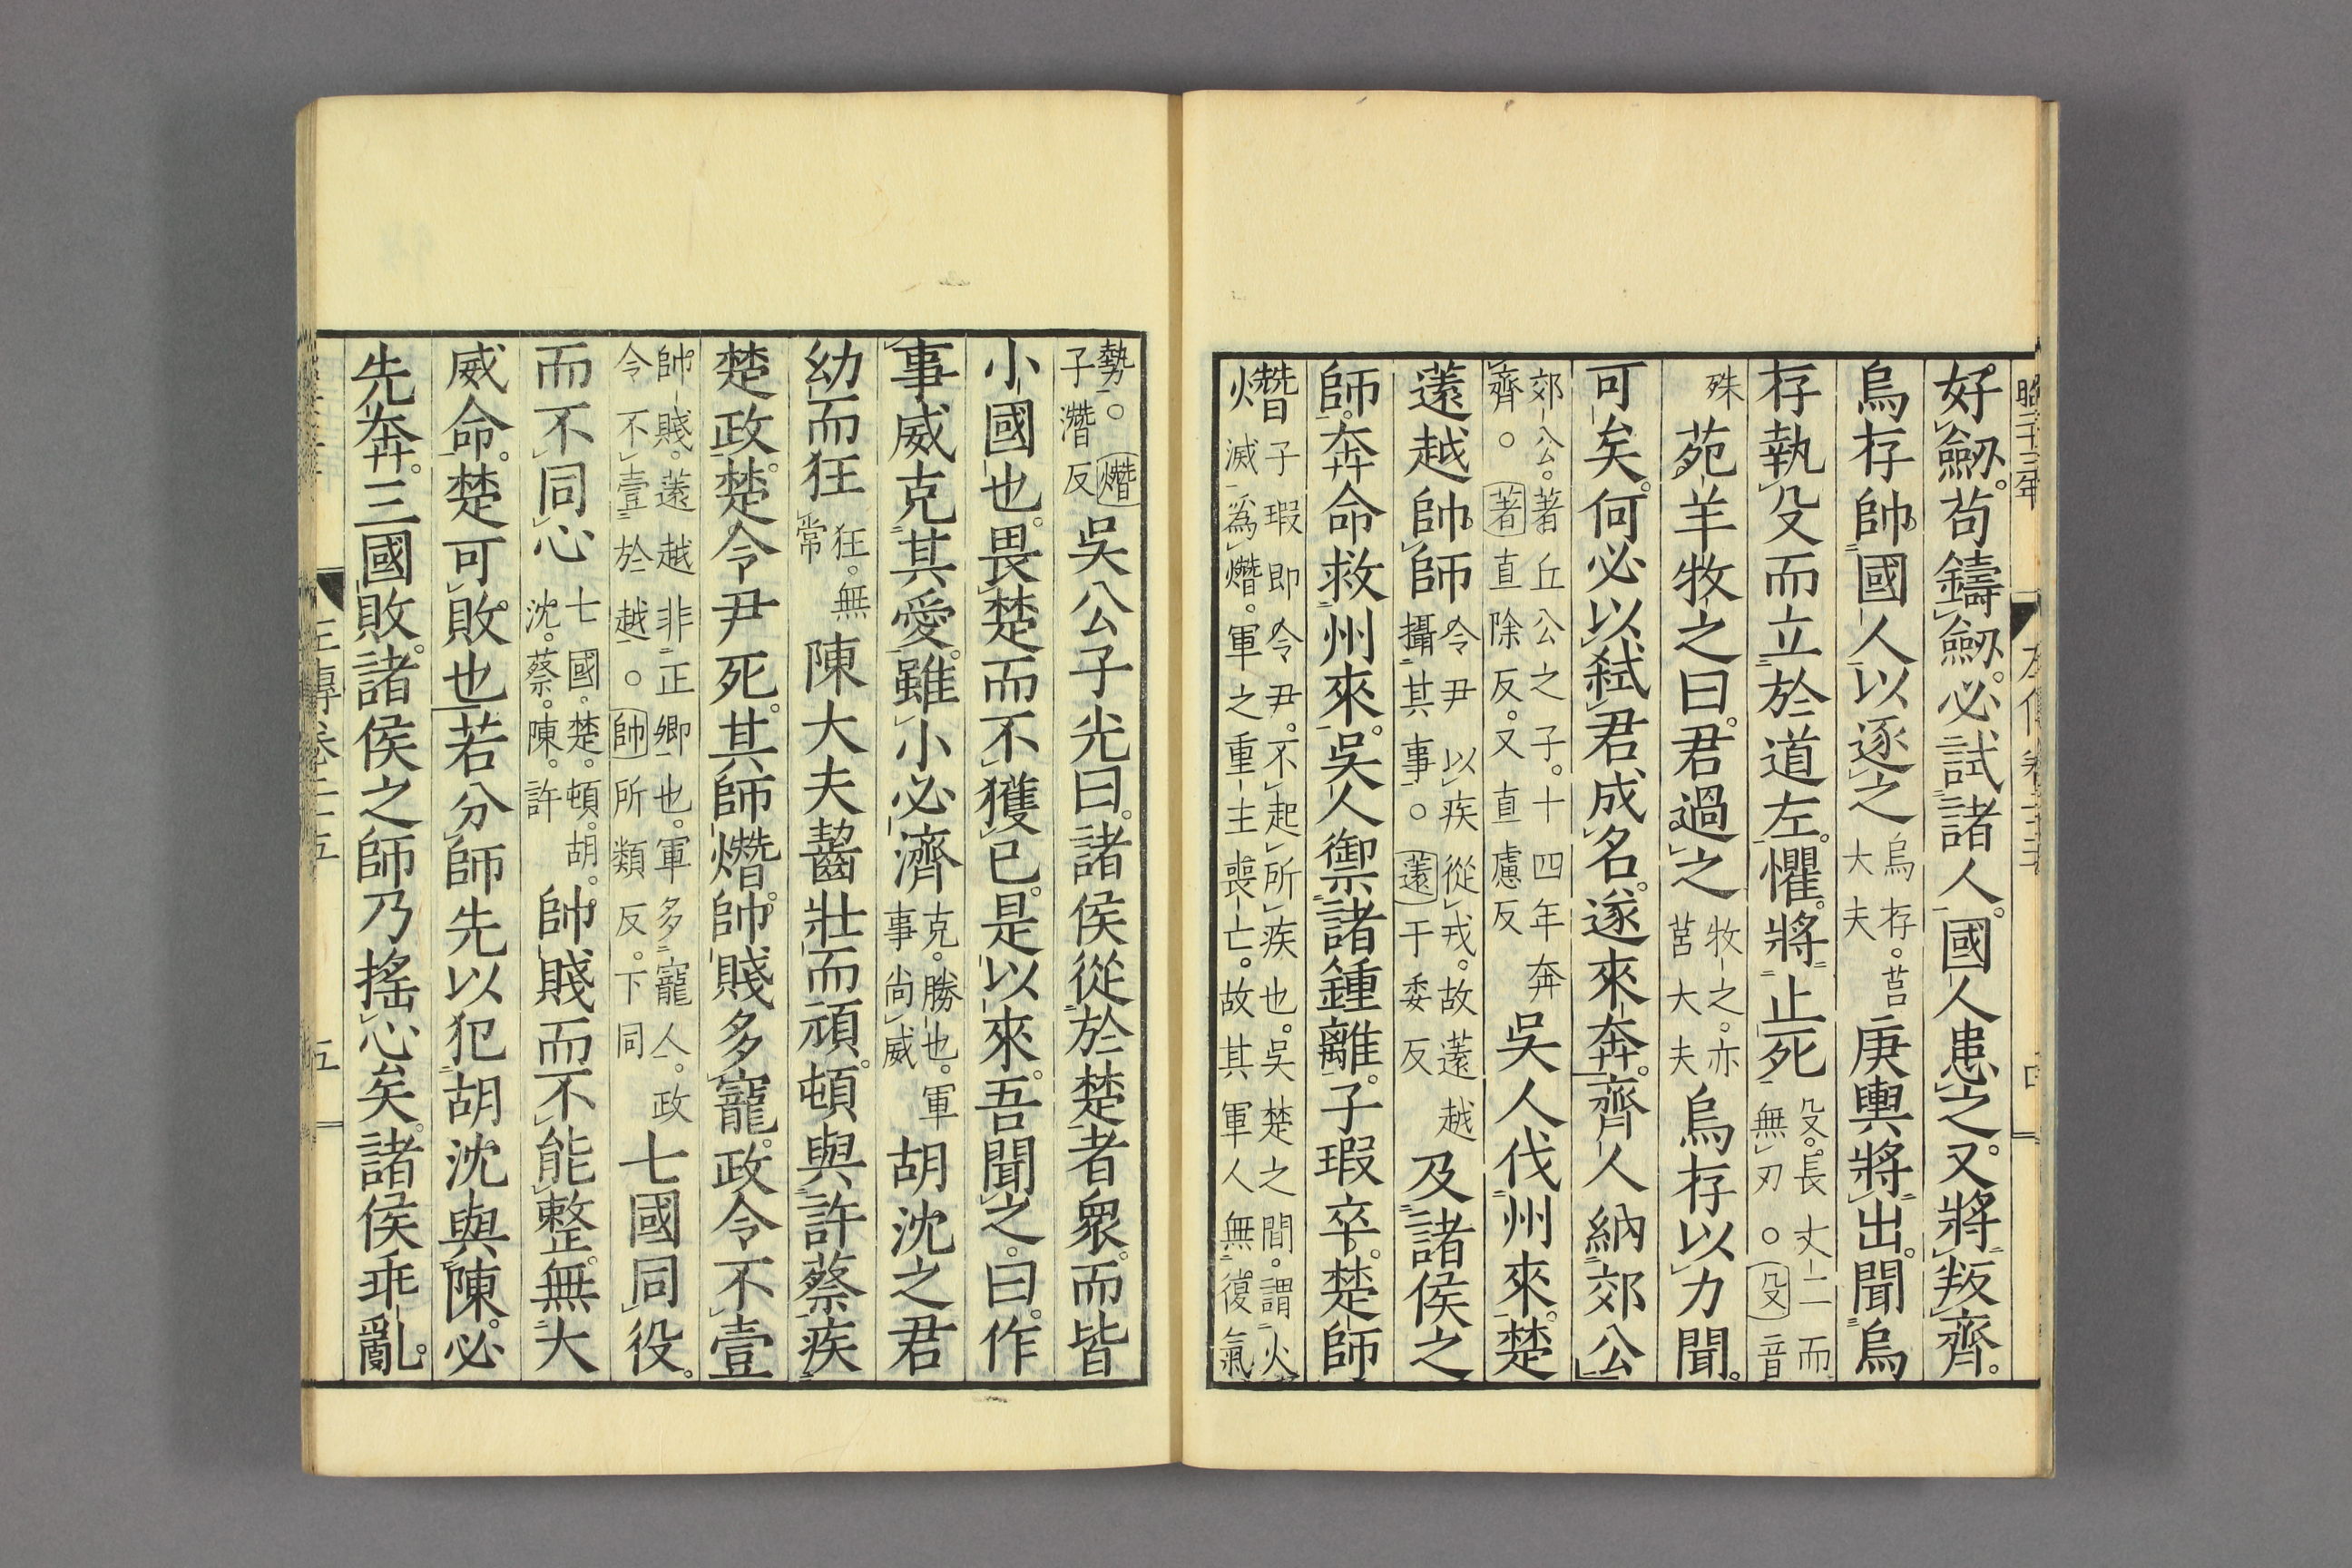 昭二十三年　左傳卷二十五
好劒。苟鑄劒。必試諸人。國人患之。又將叛齊。
烏存帥國人以逐之烏存。莒大夫庚輿將出。聞烏
存執殳而立於道左。懼。將止死殳。長丈二而無刃。○殳音
殊苑羊牧之曰。君過之牧之。亦莒大夫烏存以力聞。
可矣。何必以弑君成名。遂來奔。齊人納郊公
郊公。著丘公之子。十四年奔齊。○著直除反。又直慮反吳人伐州來。楚
薳越帥師令尹以疾從戎。故薳越攝其事。○薳于委反及諸侯之
師。奔命救州來。吳人禦諸鍾離。子瑕卒。楚師
熸子瑕即令尹。不起所疾也。吳楚之間。謂火滅爲熸。軍之重主喪亡。故其軍人無復氣
勢。○熸子潛反吳公子光曰。諸侯從於楚者衆。而皆
小國也。畏楚而不獲已。是以來。吾聞之。曰。作
事威克其愛。雖小必濟克。勝也。軍事尚威胡沈之君
幼而狂狂。無常陳大夫齧壯而頑。頓與許蔡疾
楚政。楚令尹死。其師熸。帥賤多寵。政令不壹
帥賤。薳越非正卿也。軍多寵人。政令不壹於越。○帥所類反。下同七國同役。
而不同心七國。楚。頓。胡。沈。蔡。陳。許帥賤而不能整。無大
威命。楚可敗也。若分師先以犯胡沈與陳。必
先奔。三國敗。諸侯之師乃搖心矣。諸侯乖亂。
左傳卷二十五　五